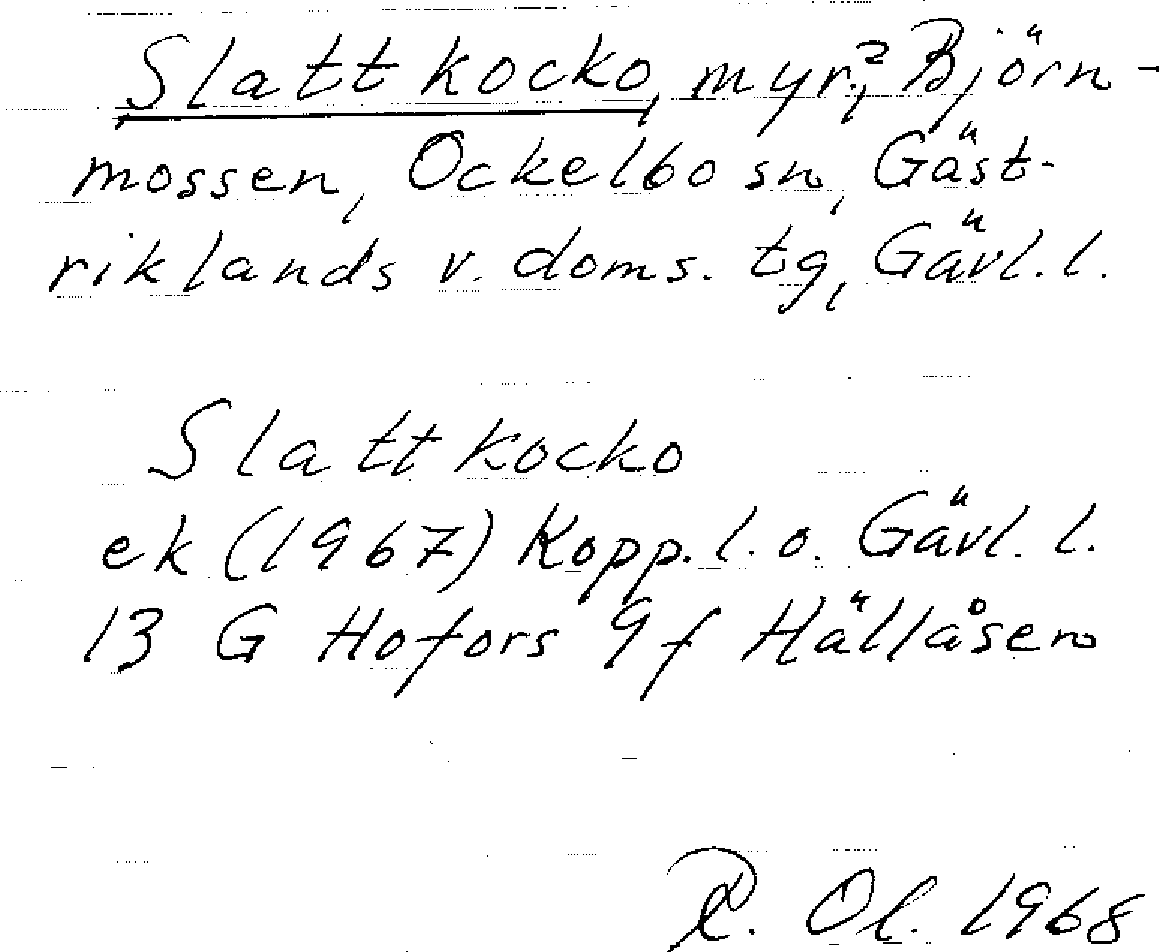 Slattkocko, myr,? Björn-
mossen, Ockelbo sn, Gäst-
riklands v. doms. tg, Gävl. l.
Slattkocko
ek (1967) Kopp. l. o. Gävl. l.
13 G Hofors 9 f Hällåsen
R. Ol. 1968